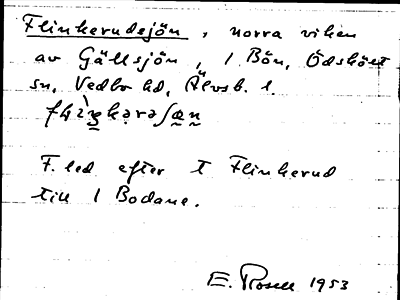 Flinkerudsjön, norra viken
av Gällsjön, 1 Bön, Ödsköls
sn, Vedbo hd, Älvsb. l.
F. led efter t Flinkerud
till 1 Bodane.
E. Rosell 1953